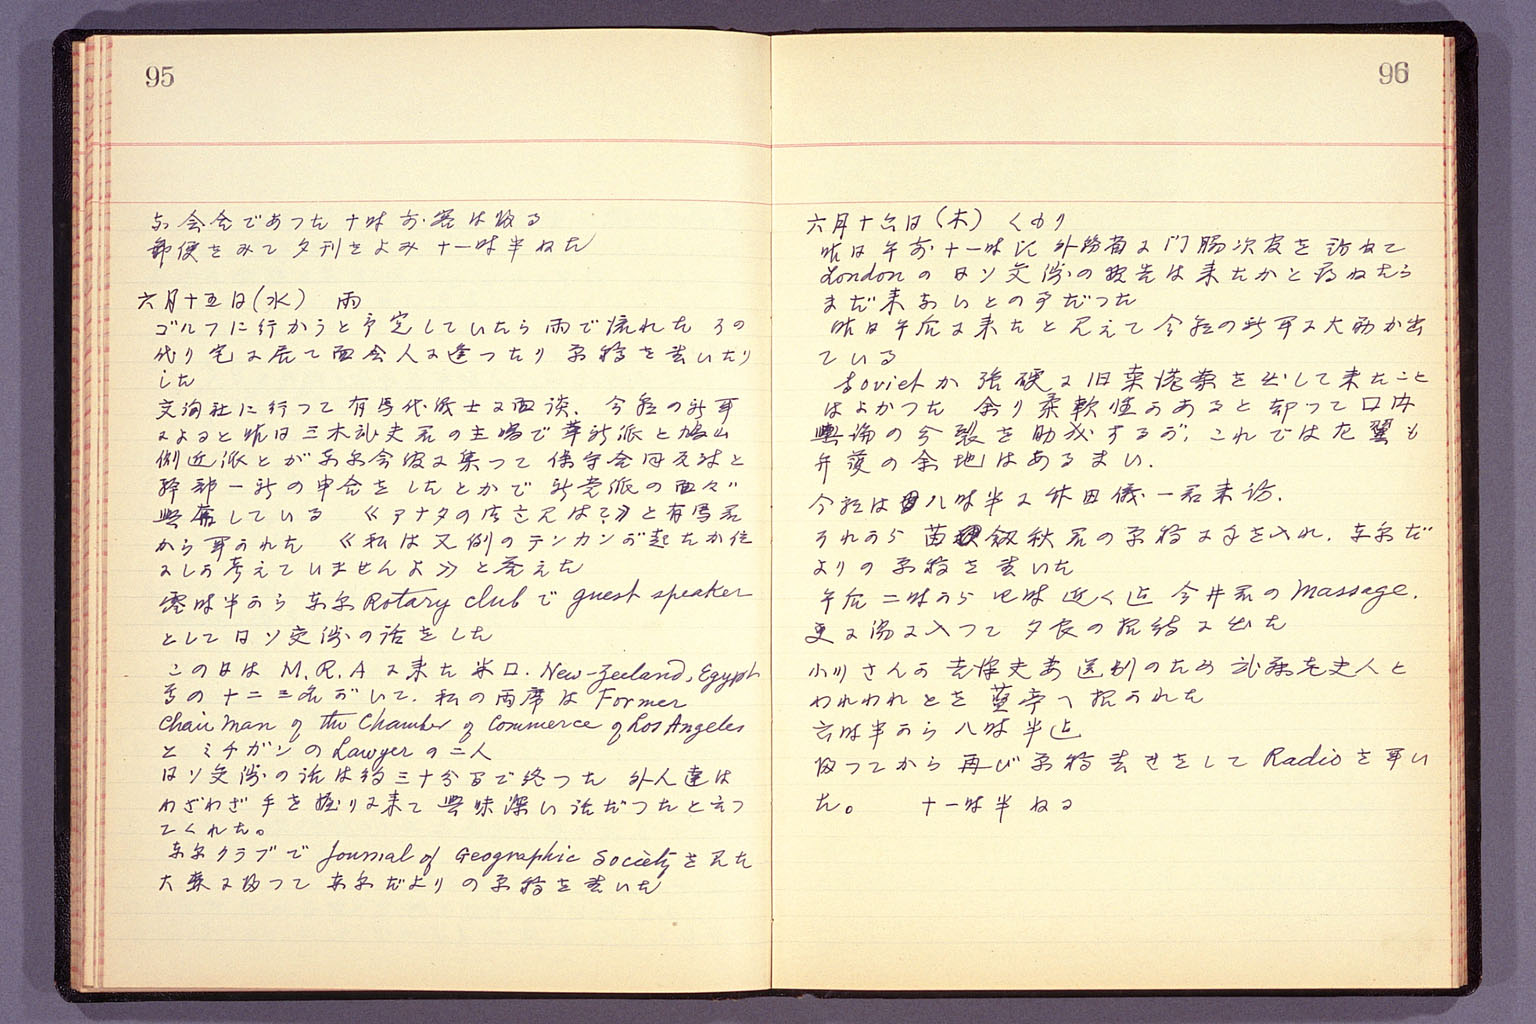 95
会合であつた 十時前 客は帰る
郵便をみて夕刊をよみ 十一時半ねた
六月十五日(水) 雨
ゴルフに行かうと予定していたら雨で流れた その
代り宅に居て面会人に逢つたり 原稿を書いたり
した
交詢社に行つて有馬 面談、今夜の新聞
によると昨日三木武夫君の主唱で革新派と鳩山
側近派とが東京会舘に集つて 保守合同反対と
幹部一新の申合をしたとかで 新党派の面々
興奮している 《アナタの 意見は?》と有馬君
から聞かれた 《私は又例のテンカンが起たか位
にしか考えていませんよ》と答えた
零時半から東京Rotary clubで guest speaker
として日ソ交渉の話をした
この日は M.R.A に来た米国. New-Zeeland, Egypt
等の十二三名がいて、私の両席は Former
Chairman of the Chamber of Commerce of Los Angeles
と ミチガンの Lawyer の二人
日ソ交渉の話は約三十分間で終つた 外人達は
わざわざ手を握りに来て 興味深い話だつたと云つ
てくれた。
東京クラブで Journal of Geographic Society を見た
大森に帰つて 東京だよりの原稿を書いた
96
六月十六日(木) くもり
昨日午前十一時に 外務省に門脇次官を訪ねて
Londonの日ソ交渉の報告は来たかと尋ねたら
まだ来ないとの事だつた
昨日午后に来たと見えて今夜の新聞に大分が出
ている
Soviet が 強硬な旧来提案を出して来たこと
はよかつた 余り柔軟性があると却つて国内
輿論の分裂を助成するが、これでは左翼も
弁護の余地はあるまい.
今夜は 八時半に 休田儀一君来訪.
それから 苗 釼秋君の原稿に手を入れ、東京だ
よりの原稿を書いた
午后二時から四時近く迄 今井君の Massage.
更に湯に入つて 夕食の招待に出た
小川さんが 夫妻送別のため 武藤老夫人と
われわれとを 亭へ招かれた
六時半から八時半迄
帰つてから再び原稿書きをして Radioを聞い
た。 十一時半ねる